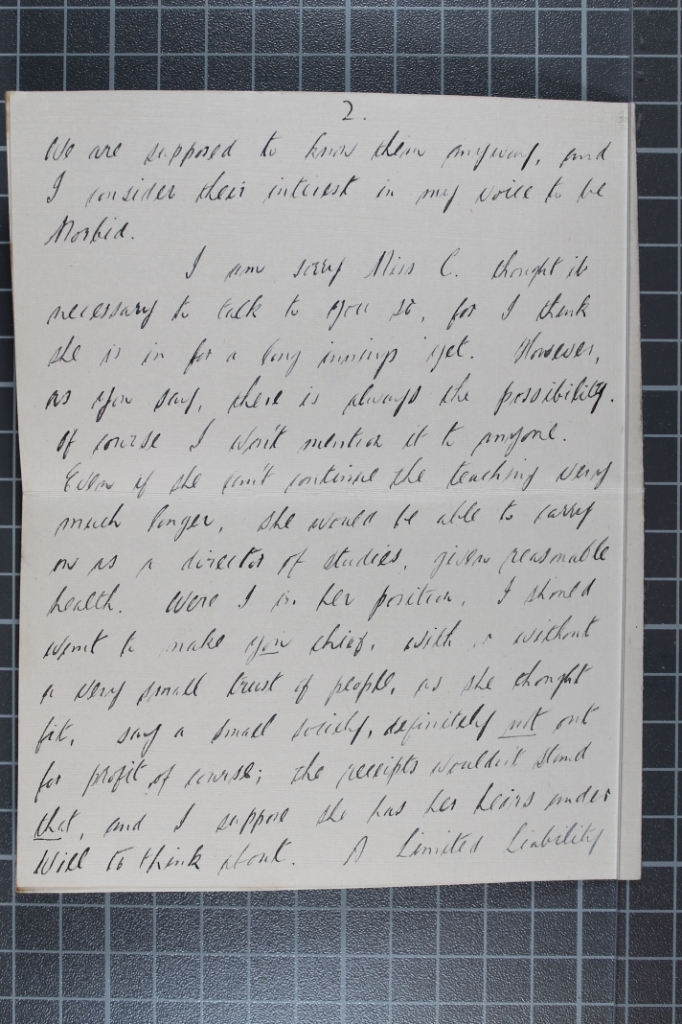 2.
We are supposed to know them anyway, and
I consider their interest in my voice to be
Morbid.
I am sorry Miss C. thought it
necessary to talk to you so, for I think
she is in for a long innings yet. However,
as you say, there is always the possibility.
Of course I won't mention it to anyone.
Even if she can't continue the teaching very
much longer, she would be able to carry
on as a director of studies, given reasonable
health. Were I in her position, I should
want to make you chief, with or without
a very small trust of people, as she thought
fit, say a small society, definitely not out
for profit of course; the receipts wouldn't stand
that, and I suppose she has her heirs under
Will to think about. A Limited Liability